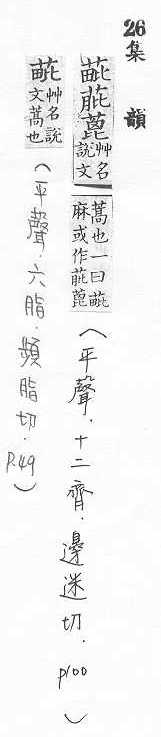 26
集韻
蓖
艸名
說文
蒿也一曰
麻或作蓖
（平聲．十二齊．邊迷切．p100）
艸名說
文蒿也
（平聲．六脂．頻脂切．P.49）